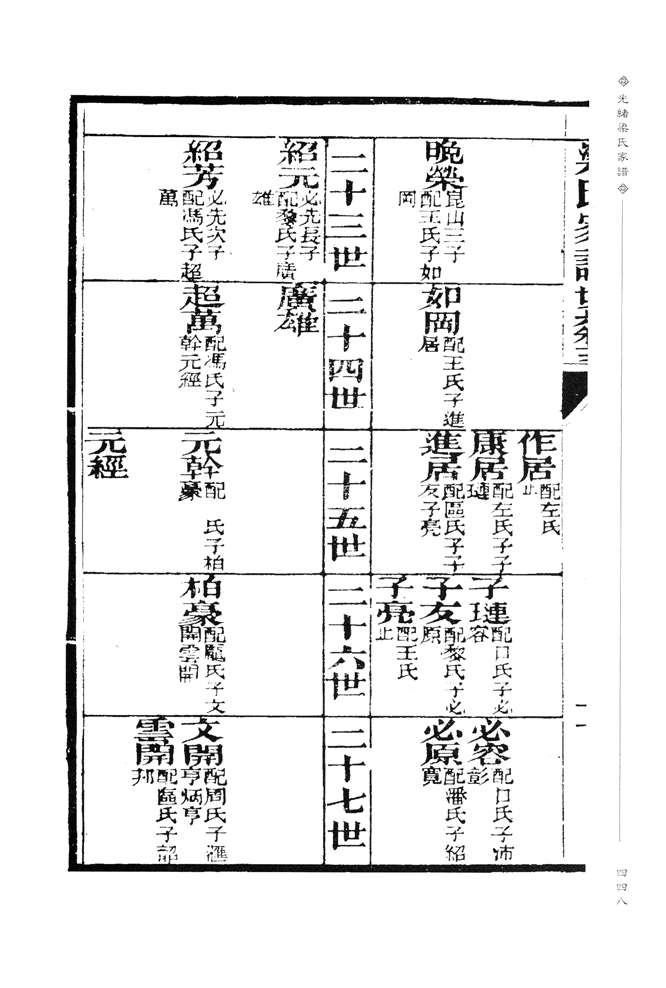 光緒梁氏家譜
四四八
梁氏家譜
晚榮
崑山三子
配王氏子如
岡
二十三世
紹元
必先長子
配黎氏子廣
雄
紹芳
必先次子
配馮氏子超
萬
如岡
配王氏子進
居
二十四世
廣雄
超萬
配馮氏子元
幹元經
作居
配左氏
止
康居
配左氏子子
璉
進居
配區氏子子
友子亮
二十五世
元幹
配 氏子柏
豪
元經
子璉
配口氏子必
容
子友
配黎氏子必
原
子亮
配王氏
止
二十六世
柏豪
配龐氏子文
開雲開
必容
配口氏子沛
彭
必原
配潘氏子紹
寬
二十七世
文開
配周氏子滙
亨炳亨
雲開
配區氏子韶
邦